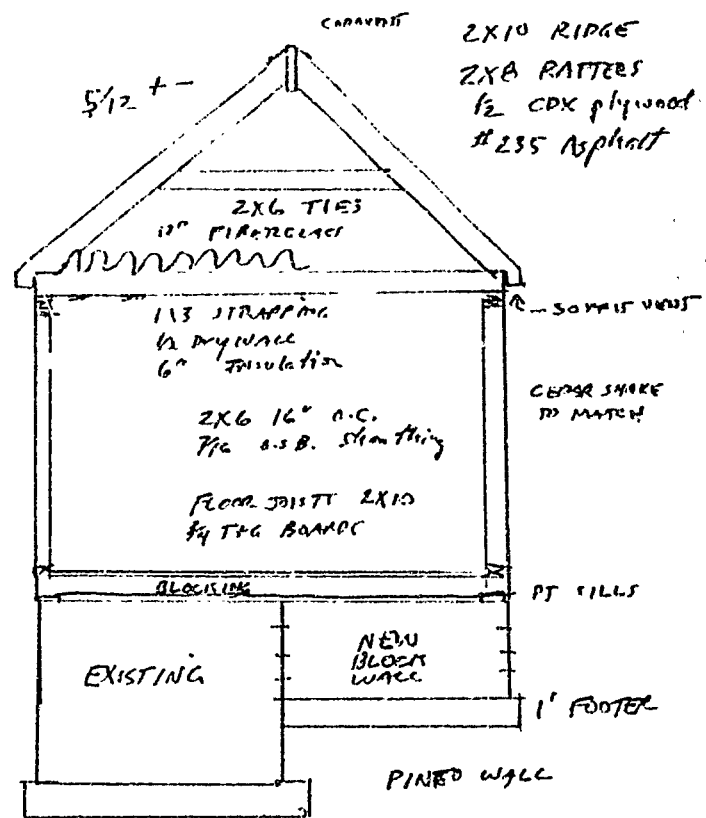 2X10 RIDGE
2X8 RAFTERS
1/2 CDX plywood
#235 Asphalt
5/12 + -
2X6 TIES
FIBERGLASS
1X3 STRAPPING
1/2 DRYWALL
6" Insulation
SOFFIT VENT
CEDAR SHAKE
TO MATCH
2X6 16" O.C.
7/16 O.S.B. Sheathing
FLOOR JOIST 2X10
3/4 T+G BOARDS
BLOCKING
PT SILLS
EXISTING
NEW
BLOCK
WALL
1' FOOTER
WALL